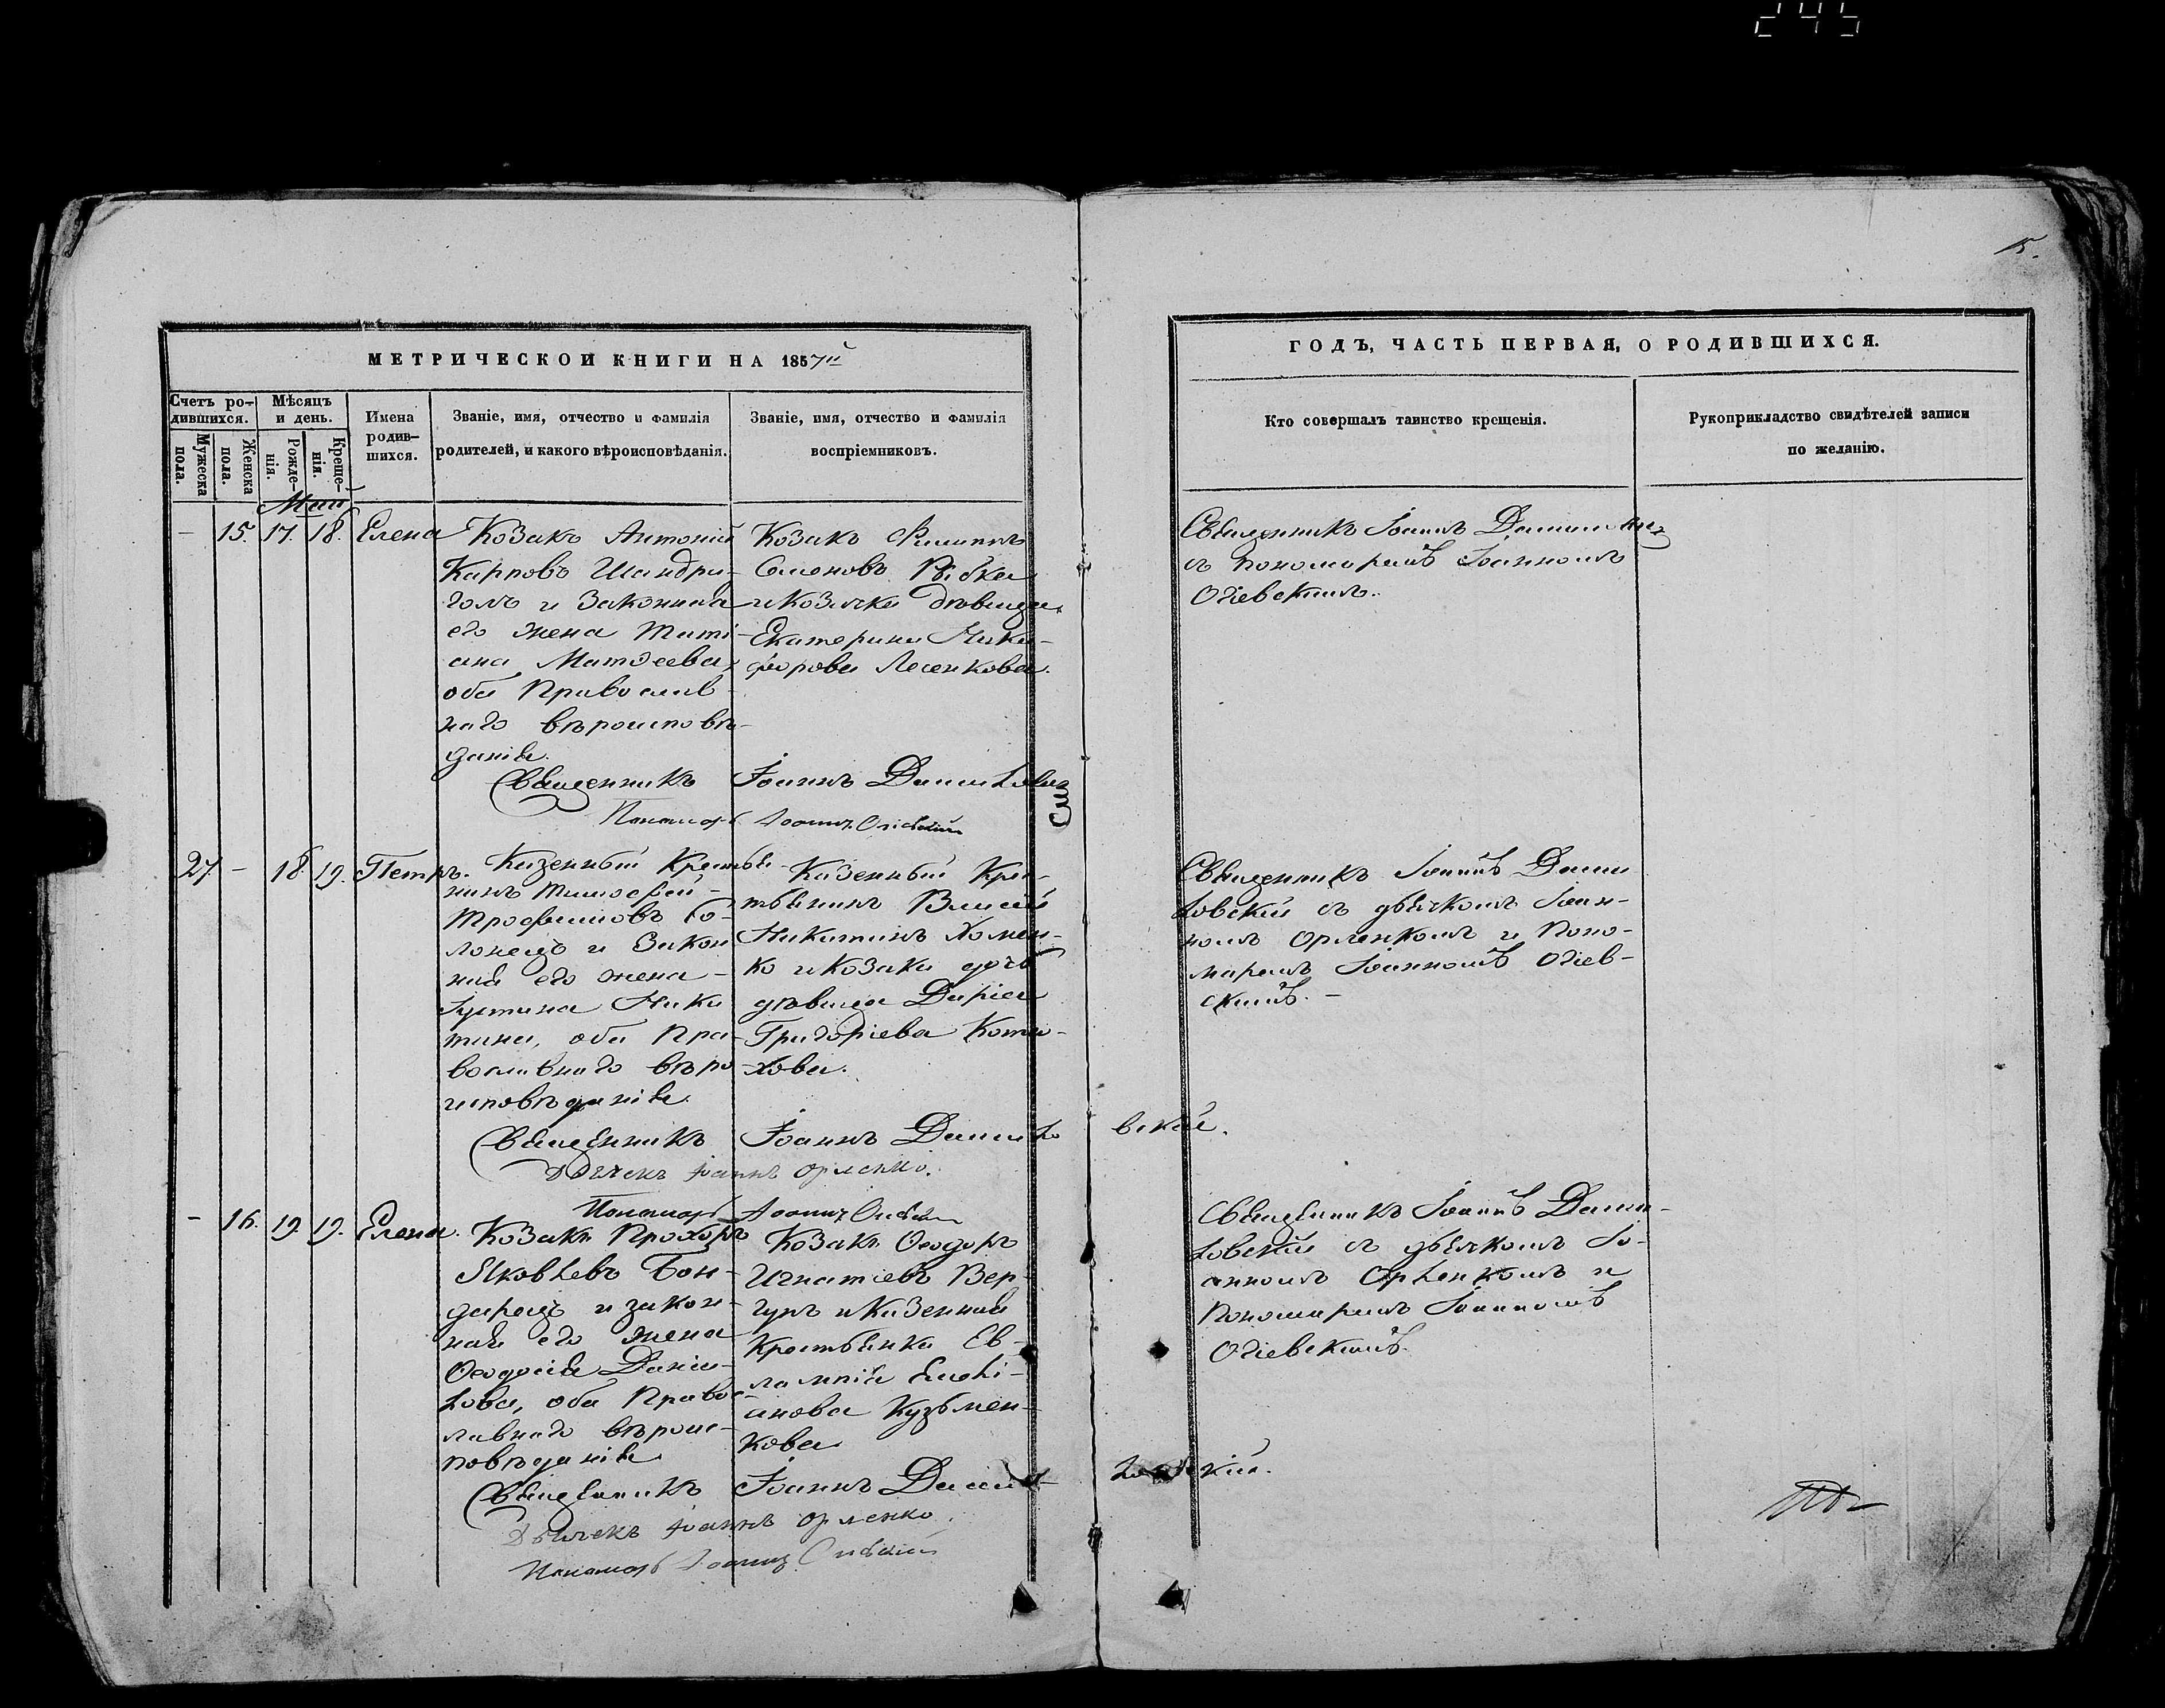 245
15.
МЕТРИЧЕСКОЙ КНИГИ НА 1857й
ГОДЪ, ЧАСТЬ ПЕРВАЯ, О РОДИВШИХСЯ.
Счетъ ро-
дившихся.
Мужеска
пола.
Женска
пола.
Мѣсяцъ
и день.
Рожде-
нія.
Креще-
нія.
Имена
родив-
шихся.
Званіе, имя, отчество и фамилія
родителей, и какого вѣроисповѣданія.
Званіе, имя, отчество и фамилія
воспріемниковъ.
Кто совершалъ таинство крещенія.
Рукоприкладство свидѣтелей записи
по желанію.
Май
– 15. 17. 18. Елена
Козакъ Антоній
Карповъ Шандри-
голъ и Законная
его жена Тати-
ана Матѳеева,
оба Православ-
наго вѣроисповѣ-
данія.
Козакъ Филиппъ
Семеновъ Рѣбка
и козачка дѣвица
Екатерина Ники-
форова Лесенкова.
Священникъ Іоаннъ
съ пономаремъ Іоанномъ
Огіевскимъ.
Священникъ Іоаннъ Данилов
Пономарь Іоаннъ Огіевскій
27. – 18. 19. Петръ.
Казенный Крестья-
нинъ Тимофей
Трофимовъ Го-
лонецъ и Закон
ная его жена
Іустина Ники
тина, оба Пра-
вославнаго вѣро
исповѣданія.
Казенный Кре-
стьянинъ
Никитинъ Хомен-
ко и козака дочь
дѣвица Дарія
Григоріева Коты-
хова.
Священникъ Іоаннъ Дани
ловскій съ дьячкомъ Іоан-
номъ Орленкомъ и Поно-
маремъ Іоанномъ Огіев-
скимъ. –
Священникъ Іоаннъ Данило
вскій.
Дьячекъ Іоаннъ Орленко.
Пономарь Іоаннъ Огіевскій
– 16. 19. 19. Елена.
Козакъ Прохоръ
Яковлевъ Бон-
дарецъ и закон-
ная его жена
Ѳеодосія Дани-
лова, оба Правос-
лавнаго вѣроис-
повѣданія.
Козакъ Ѳеодоръ
Игнатіевъ Вер-
гунъ и Казенная
Крестьянка Ев-
лампія Емелі-
анова Кузьмен-
кова
Священникъ Іоаннъ Дани-
ловскій съ дьячкомъ Іо-
анномъ Орленкомъ и
Пономаремъ Іоанномъ
Огіевскимъ.
Священникъ Іоаннъ Дани-
ловскій.
Дьячекъ Іоаннъ Орленко.
Пономарь Іоаннъ Огіевскій